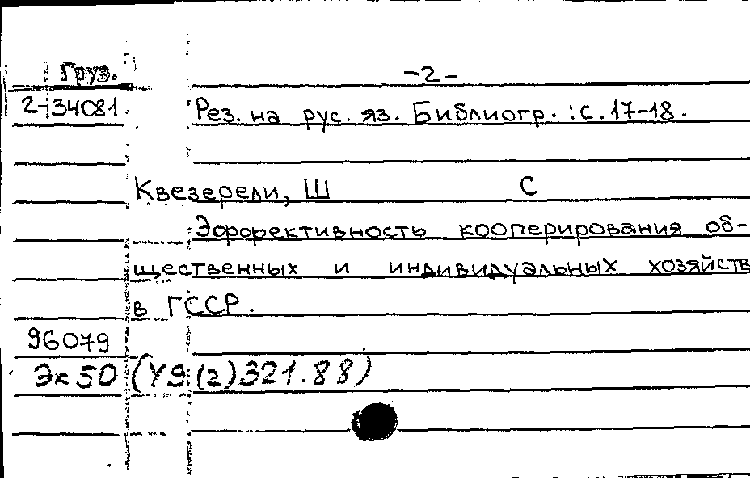 Груз. -2-
2-34081 Рез. на рус. яз. Библиогр.: с. 17-18.
Квезерели, Ш С
Эффективность кооперирования об-
щественных и индивидуальных хозяйств
в ГССР.
96079
Эк 50 (У9(2)321.88)